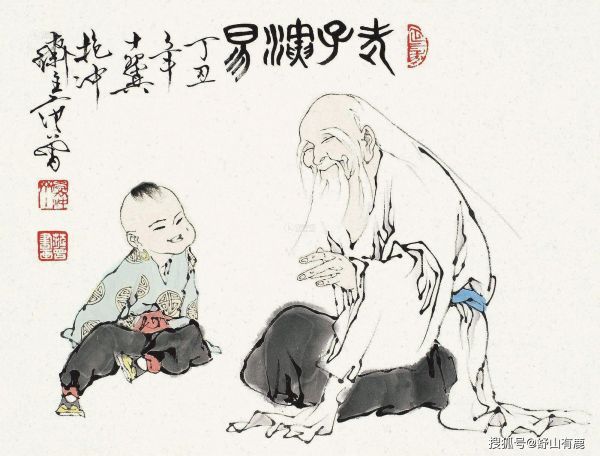 老子演易
丁丑
年
十翼
抱冲
齋主范曾
搜狐号@蜉山有鹿